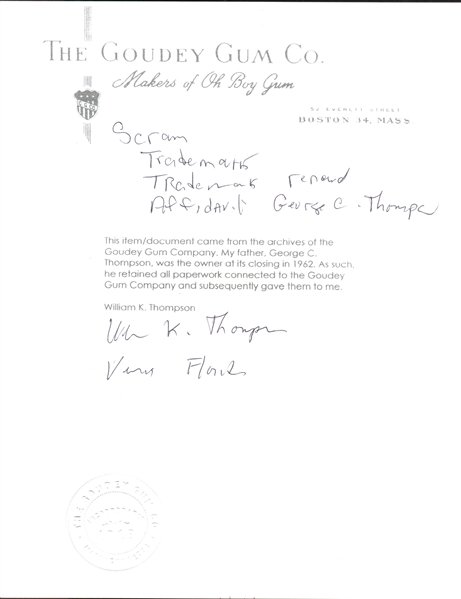 THE GOUDEY GUM CO.
Makers of Oh Boy Gum
52 EVERETT STREET
BOSTON 34, MASS
Scram
Trademark
TRademark renewd
Affidavit George C. Thompson
This item/document came from the archives of the
Goudey Gum Company. My father, George C.
Thompson, was the owner at its closing in 1962. As such,
he retained all paperwork connected to the Goudey
Gum Company and subsequently gave them to me.
William K. Thompson
K. Thompson
THE GOUDEY GUM CO.